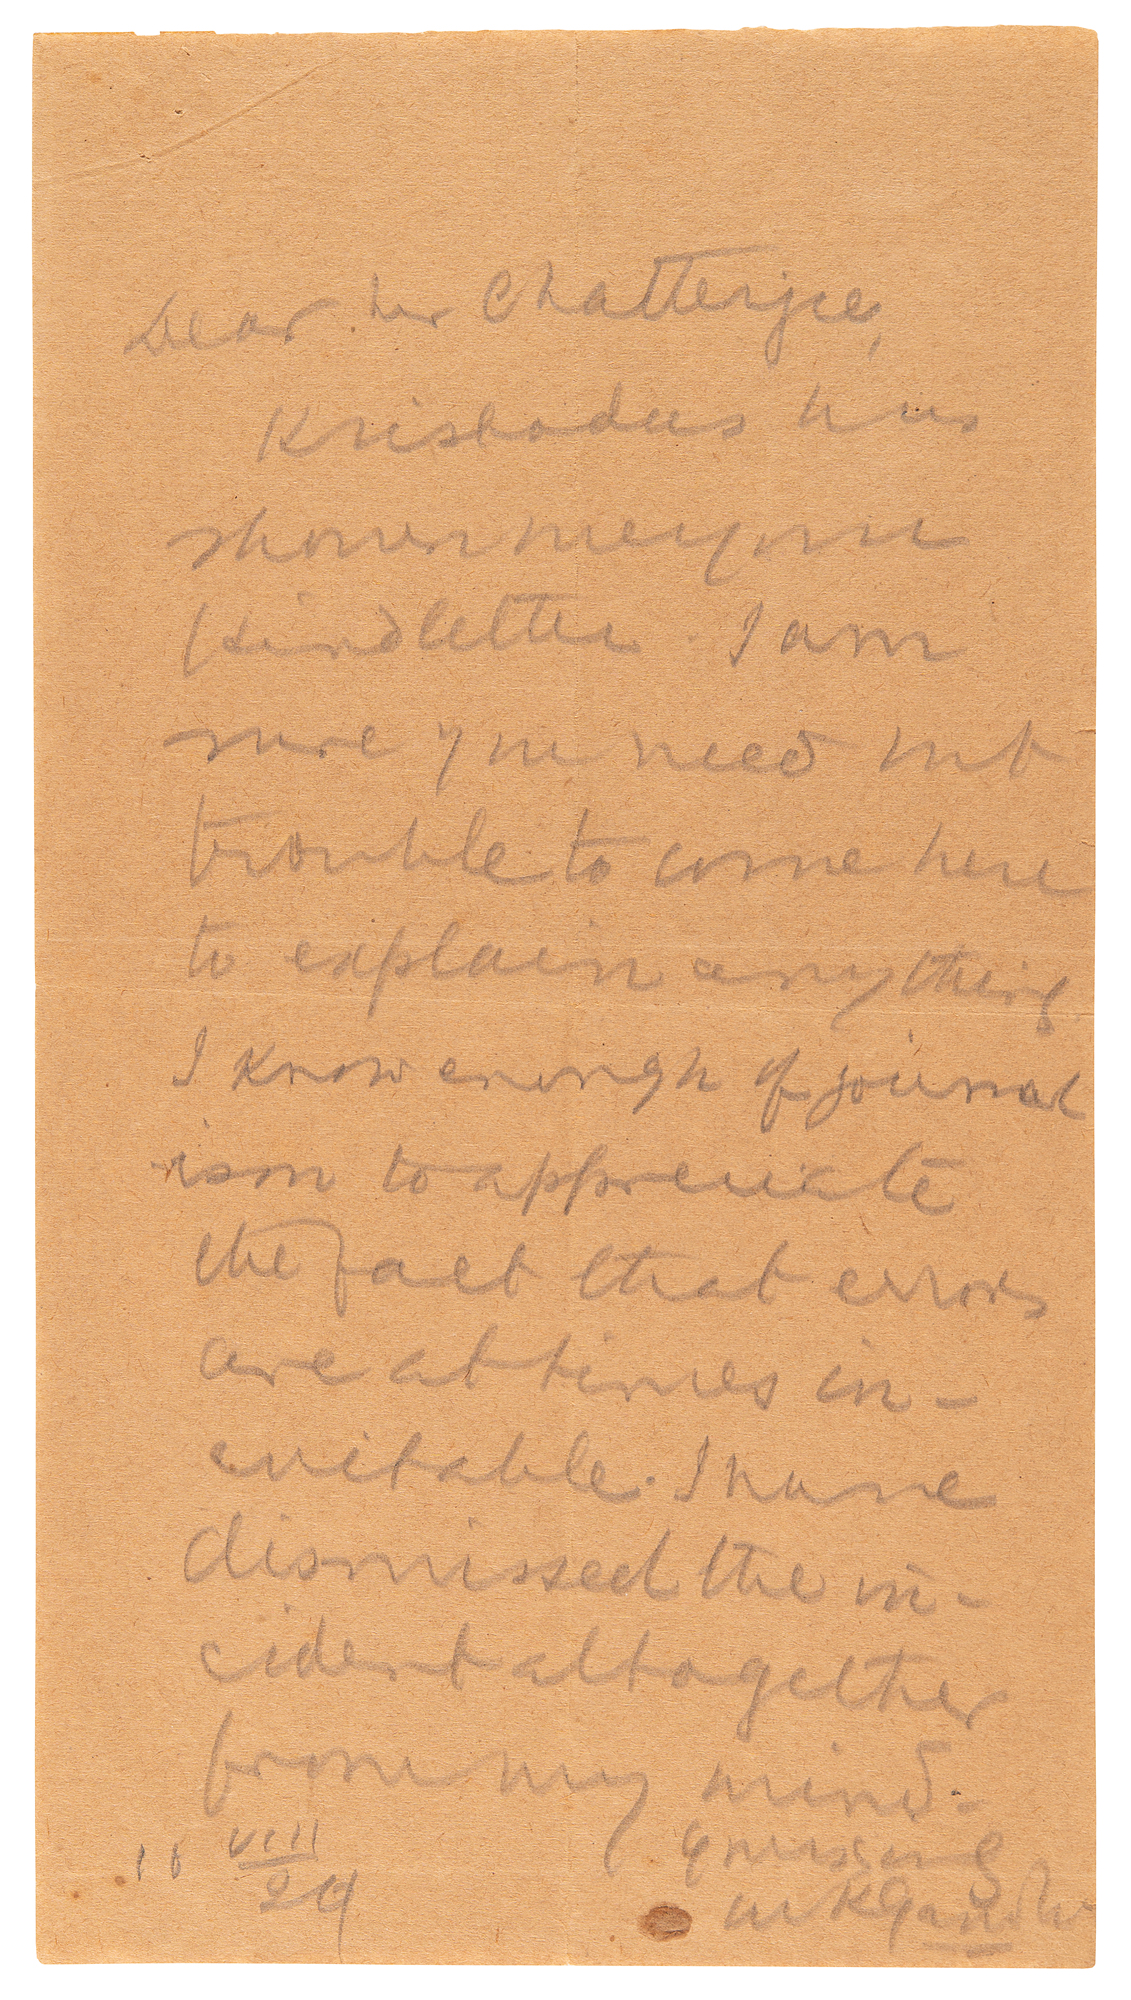 Dear Mr Chatterjee,
Krishnadas has
shown me your
kind letter. I am
sure you need not
trouble to come here
to explain anything
I know enough of journal
ism to appreciate
the fact that errors
are at times in-
evitable. I have
dismissed the in-
cident altogether
from my mind.
Yours sincly
MKGandhi
16 VIII
24